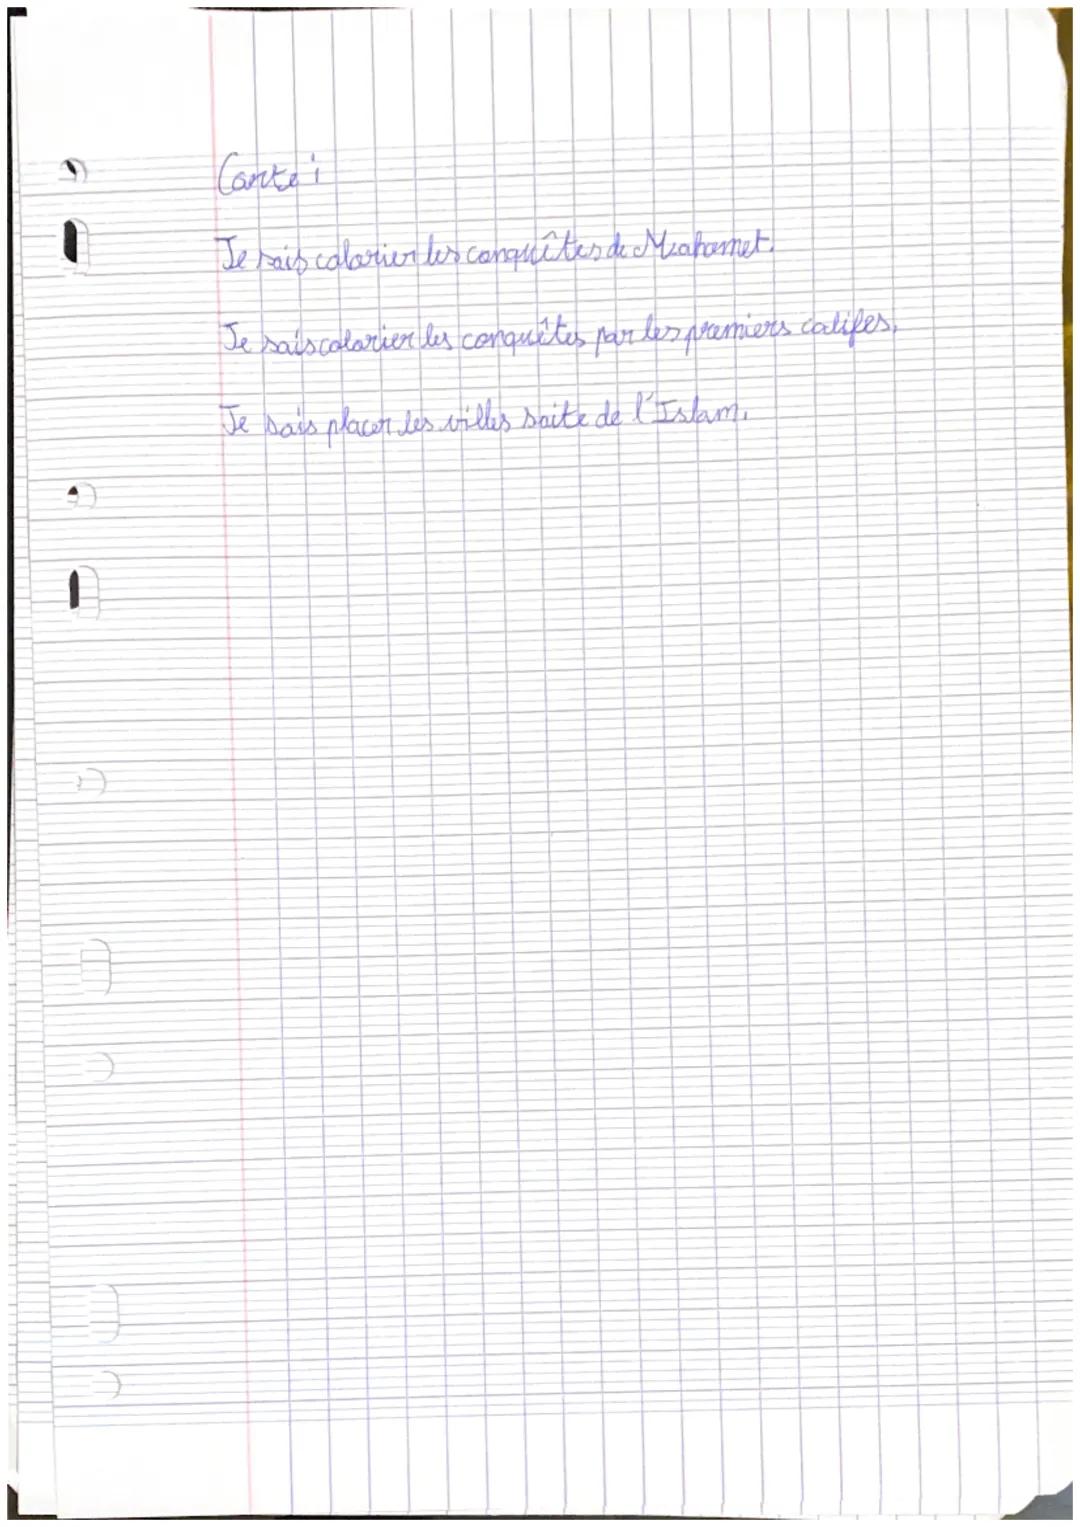 Carte :
Je sais colorier les conquêtes de Mahomet.
Je sais colorier les conquêtes par les premiers califes.
Je sais placer les villes saite de l'Islam.